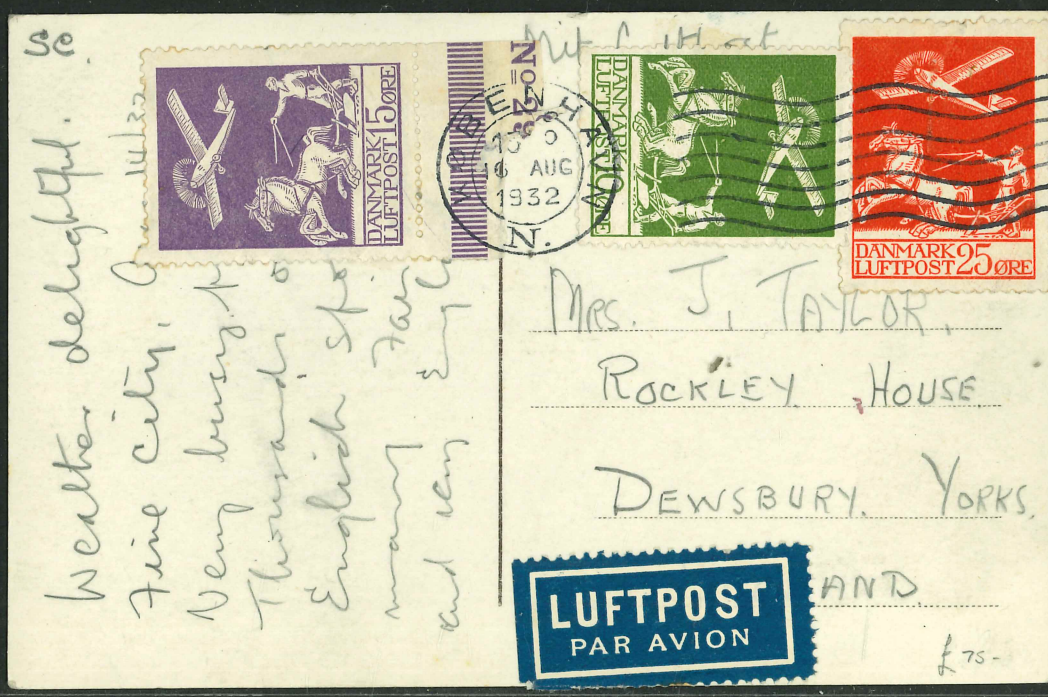 SC
Weather delightful.
Fine City.
Very busy
Thousands
English
many Fair
and very Engl
15 ØRE
DANMARK
LUFTPOST
No
KØBENHAVN
16 AUG
1932
N.
DANMARK
LUFTPOST
DANMARK
LUFTPOST 25 ØRE
MRS. J. TAYLOR,
ROCKLEY HOUSE
DEWSBURY. YORKS.
AND
LUFTPOST
PAR AVION
£75-